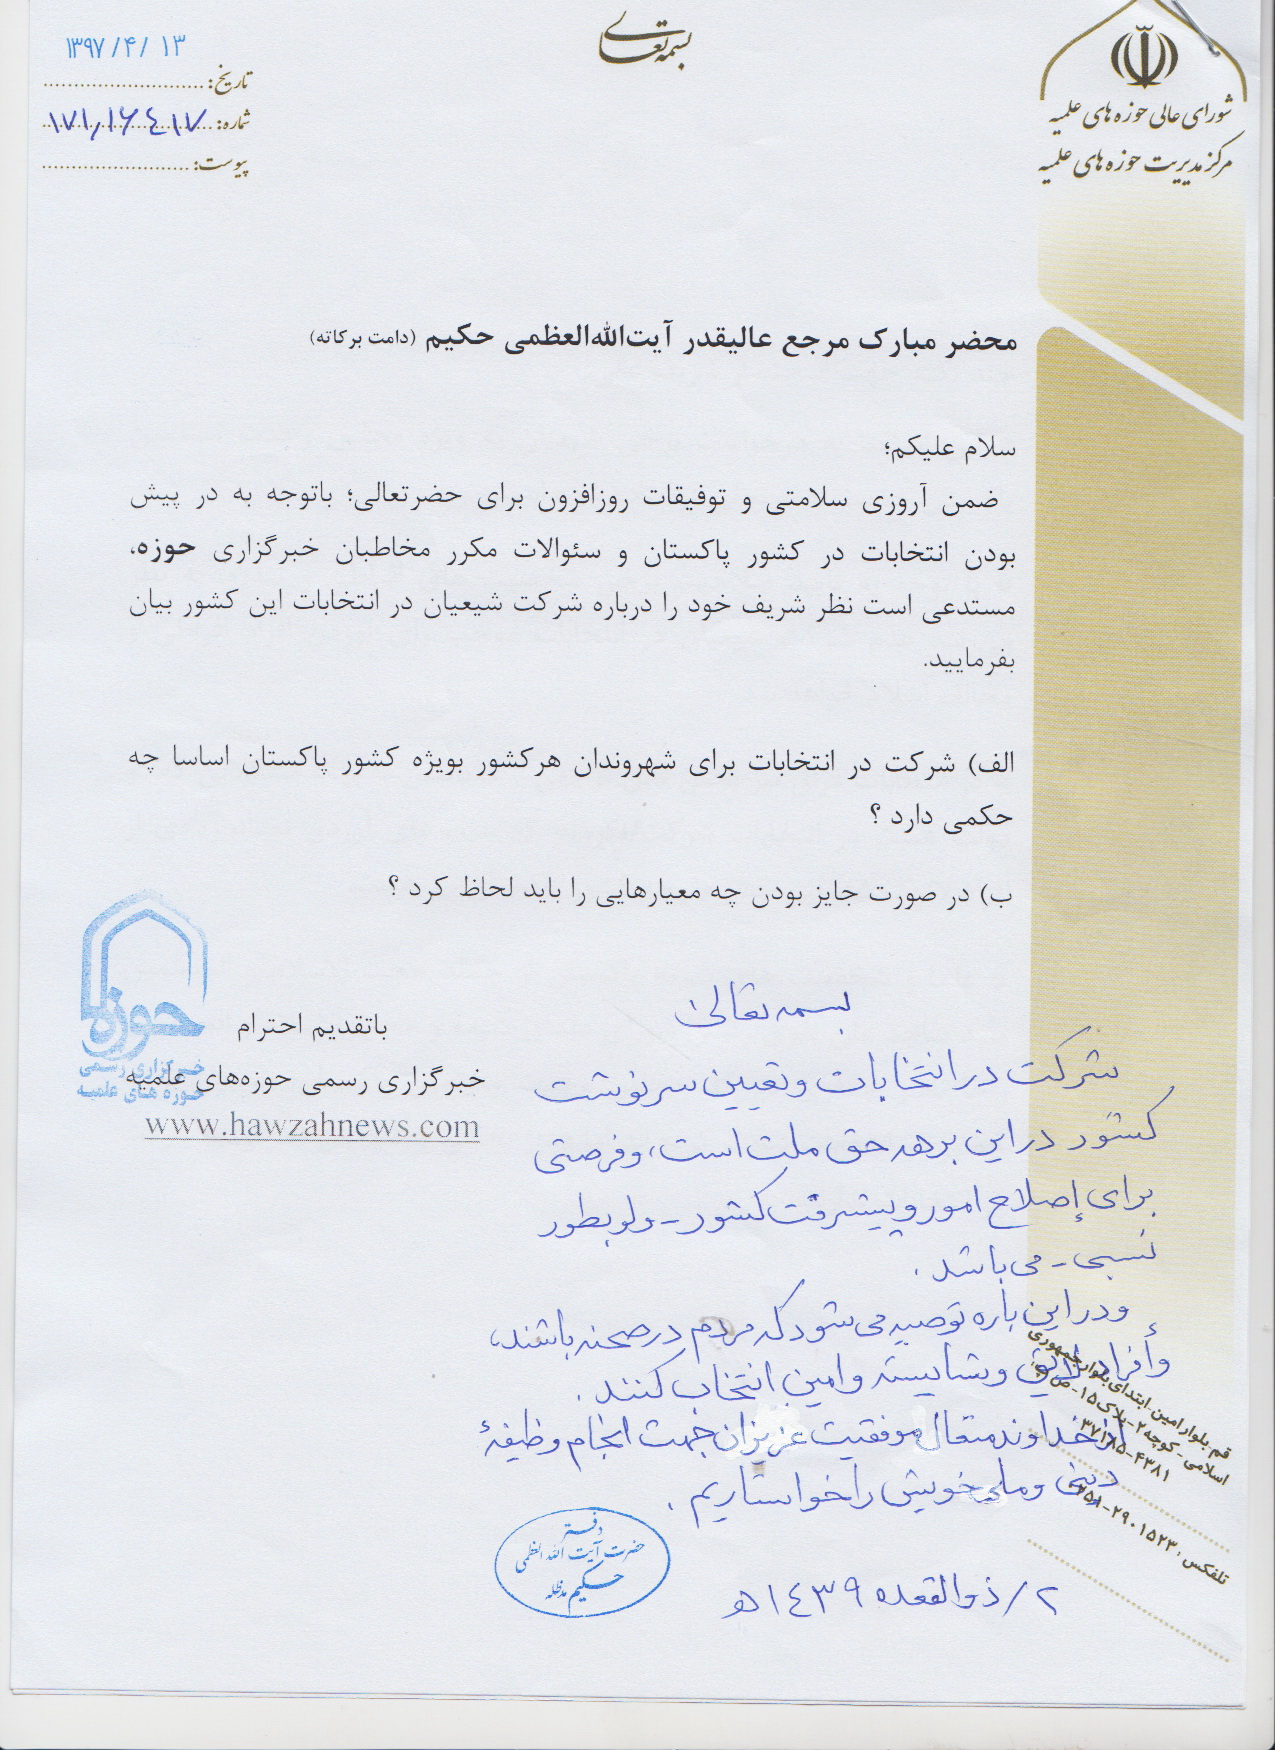 بسمه تعالی
شورای عالی حوزه های علمیه
مرکز مدیریت حوزه های علمیه
۱۳۹۷/۴/۱۳
تاریخ:
شماره: ۱۷۱,۱۶۴۱۷
پیوست:
محضر مبارک مرجع عالیقدر آیت‌الله‌العظمی حکیم (دامت برکاته)
سلام علیکم؛
ضمن آروزی سلامتی و توفیقات روزافزون برای حضرتعالی؛ باتوجه به در پیش
بودن انتخابات در کشور پاکستان و سئوالات مکرر مخاطبان خبرگزاری حوزه،
مستدعی است نظر شریف خود را درباره شرکت شیعیان در انتخابات این کشور بیان
بفرمایید.
الف) شرکت در انتخابات برای شهروندان هرکشور بویژه کشور پاکستان اساسا چه
حکمی دارد ؟
ب) در صورت جایز بودن چه معیارهایی را باید لحاظ کرد ؟
باتقدیم احترام
خبرگزاری رسمی حوزه‌های علمیه
www.hawzahnews.com
حوزه
خبرگزاری رسمی
حوزه های علمیه
بسمه تعالی
شرکت در انتخابات و تعیین سرنوشت
کشور در این برهه حق ملت است، و فرصتی
برای إصلاح امور و پیشرفت کشور - ولو بطور
نسبی - می باشد .
و در این باره توصیه می شود که مردم در صحنه باشند،
وأفراد لایق و شایسته و امین انتخاب کنند .
از خداوند متعال موفقیت عزیزان جهت انجام وظیفۀ
دینی و ملی خویش را خواستاریم .
دفتر
حضرت آیت الله العظمی
حکیم مدظله
۲/ذوالقعده ۱۴۳۹هـ
قم، بلوار امین، ابتدای بلوار جمهوری
اسلامی - کوچه ۲ - پلاک ۱۵ - ص پ:
۳۷۱۸۵-۴۳۸۱
تلفکس: ۲۹۰۱۵۲۳-۰۲۵۱